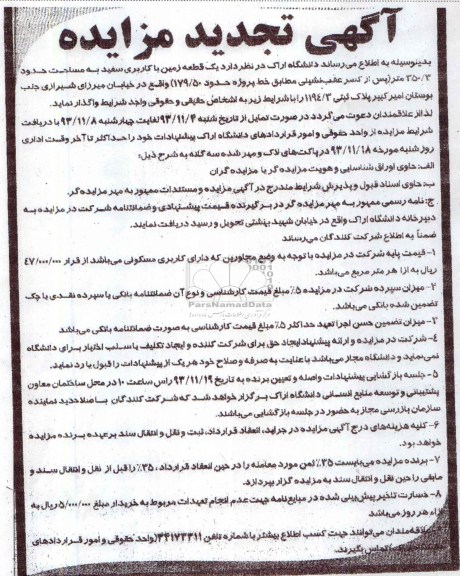 آگهی تجدید مزایده
بدینوسیله به اطلاع می‌رساند دانشگاه اراک در نظر دارد یک قطعه زمین با کاربری سفید به مساحت حدود
۳۵۰/۳ متر (پس از کسر عقب‌نشینی مطابق خط پروژه حدود ۱۷۹/۵۰) واقع در خیابان میرزای شیرازی جنب
بوستان امیرکبیر پلاک ثبتی ۱۱۹۴/۳ را با شرایط زیر به اشخاص حقیقی و حقوقی واجد شرایط واگذار نماید.
لذا از علاقمندان دعوت می‌گردد در صورت تمایل از تاریخ شنبه ۹۳/۱۱/۴ لغایت چهارشنبه ۹۳/۱۱/۸ با دریافت
شرایط مزایده از واحد حقوقی و امور قراردادهای دانشگاه اراک پیشنهادات خود را حداکثر تا آخر وقت اداری
روز شنبه مورخه ۹۳/۱۱/۱۸ در پاکت‌های لاک و مهر شده سه گانه به شرح ذیل:
الف: حاوی اوراق شناسایی و هویت مزایده گر یا مزایده گران
ب: حاوی اسناد قبول و پذیرش شرایط مندرج در آگهی مزایده و مستندات ممهور به مهر مزایده گر.
ج: نامه رسمی ممهور به مهر مزایده گر در برگیرنده قیمت پیشنهادی و ضمانتنامه شرکت در مزایده به
دبیرخانه دانشگاه اراک واقع در خیابان شهید بهشتی تحویل و رسید دریافت نمایند.
ضمناً به اطلاع شرکت کنندگان می‌رساند
۱- قیمت پایه شرکت در مزایده با توجه به وضع مجاورین که دارای کاربری مسکونی می‌باشد از قرار ۴۷/۰۰۰/۰۰۰
ریال به ازا هر متر مربع می‌باشد.
۲- میزان سپرده شرکت در مزایده ۵٪ مبلغ قیمت کارشناسی و نوع آن ضمانتنامه بانکی یا سپرده نقدی یا چک
تضمین شده بانکی می‌باشد.
ParsNamadData
۳- میزان تضمین حسن اجرا تعهد حداکثر ۵٪ مبلغ قیمت کارشناسی به صورت ضمانتنامه بانکی می‌باشد
۴- شرکت در مزایده و ارائه پیشنهاد ایجاد حق برای شرکت کننده و ایجاد تکلیف یا سلب اختیار برای دانشگاه
نمی‌نماید و دانشگاه مجاز می‌باشد با عنایت به صرفه و صلاح خود هر یک از پیشنهادات را قبول یا رد نماید.
۵- جلسه بازگشایی پیشنهادات واصله و تعیین برنده به تاریخ ۹۳/۱۱/۱۹ راس ساعت ۱۰ در محل ساختمان معاون
پشتیبانی و توسعه منابع انسانی دانشگاه اراک برگزار خواهد شد که شرکت کنندگان با صلاحدید نماینده
سازمان بازرسی مجاز به حضور در جلسه بازگشایی می‌باشند.
۶- کلیه هزینه‌های درج آگهی مزایده در جراید، انعقاد قرارداد، ثبت و نقل و انتقال سند برعهده برنده مزایده
خواهد بود.
۷- برنده مزایده می‌بایست ۳۵٪ ثمن مورد معامله را در حین انعقاد قرارداد، ۳۵٪ را قبل از نقل و انتقال سند و
مابقی را حین نقل و انتقال سند به مزایده گزار بپردازد.
۸- خسارت تاخیر پیش‌بینی شده در مبایع‌نامه جهت عدم انجام تعهدات مربوط به خریدار مبلغ ۵/۰۰۰/۰۰۰ ریال به
ازاء هر روز می‌باشد
علاقه‌مندان می‌توانند جهت کسب اطلاع بیشتر با شماره تلفن ۳۴۱۷۳۳۱۱ (واحد حقوقی و امور قراردادهای
تماس بگیرند.